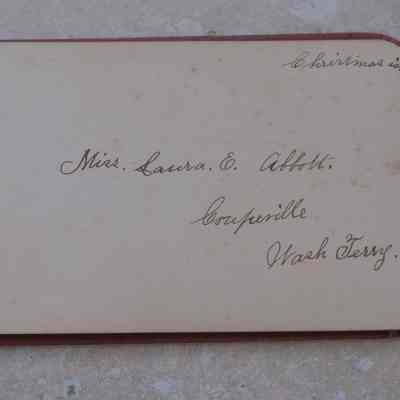 Christmas
Miss. Laura. E. Abbott.
Coupeville
Wash Terry.